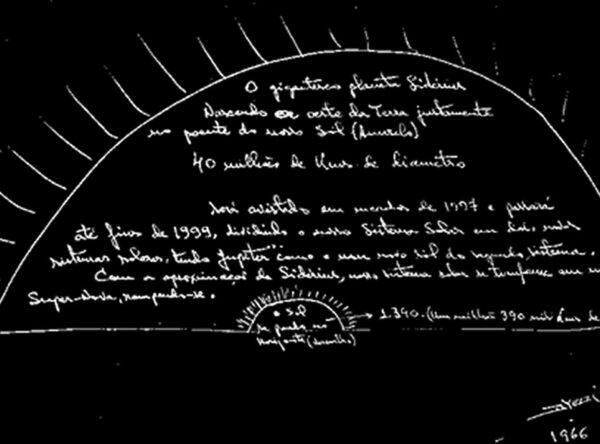 O gigantesco planeta Sidérius
Nascendo oeste da Terra justamente
no poente do nosso Sol (Amarelo)
40 milhões de Kms. de diametro
Será avistado em meados de 1997 e passará
até fins de 1999, dividindo o nosso Sistema Solar em dois,
sistemas solares, tendo Jupiter como o um novo sol do segundo sistema.
Com a aproximação de Sidérius, nosso sistema solar se em
Super-Nova, rompendo-se.
o Sol
se pondo no
horizonte (Amarelo)
1.390. (Um milhão 390 mil Kms de
1966